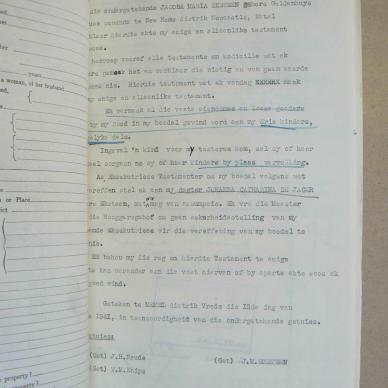 die ondergetekende JACOBA MARIA
wie woonende te New Home distrik Newcastle, Natal
klaar hierdie akte my enige en alleenlike testament
wees.
herroep vooraf alle testamente en kodisille wat ek
maak het en verklaar die nietig en van geen waarde
nie. Hierdie testament wat ek vandag maak
my enige en alleenlike testament.
Ek vermaak al die vaste eiendomme en losse goedere
by my dood in my boedel gevind word aan my drie kinders,
gelyke dele.
Ingeval 'n kind voor my testeer kom, sal sy of haar
deel oorgaan na sy of haar kinders by plaas vervulling.
As Eksekutriese Testamenter oor my boedel volgens wet
stel ek aan my dogter JOHANNA CATHARINA DE JAGER
met mag van assumpsie. Ek vra die Meester
die Hooggeregshof om geen sekerheidstelling van my
Eksekutriese vir die vereffening van my boedel te
nie.
Ek behou my die reg om hierdie Testament te enige
te kan verander aan die voet hiervan of by aparte akte soos ek
goed vind.
Geteken te MEMEL distrik Vrede die dag van
1941, in teenwoordigheid van die ondergetekende getuies.
(Get) J.H.Naude
(Get) J.M.
(Get) W.M.Knipe
years
a woman, of her husband
or Place
property ?